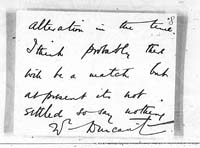 8
alteration in the time.
I think probably there
will be a match but
at present its not
settled so say nothing